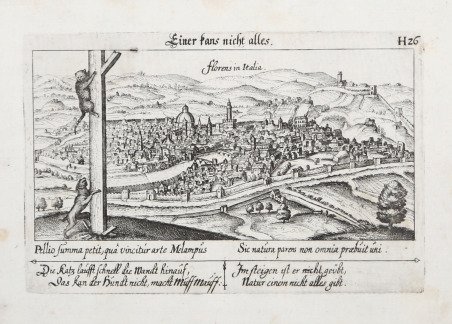 Einer kans nicht alles. H26
Florens in Italia.
Pellio summa petit, quâ vincitur arte Melampus Sic natura parens non omnia præbuit uni.
Die Katz laufft schnell die Wandt hinauf, Im steigen ist er nicht geübt,
Das kan der Hundt nicht, macht Wuff Mauff: Natur einem nicht alles gibt.